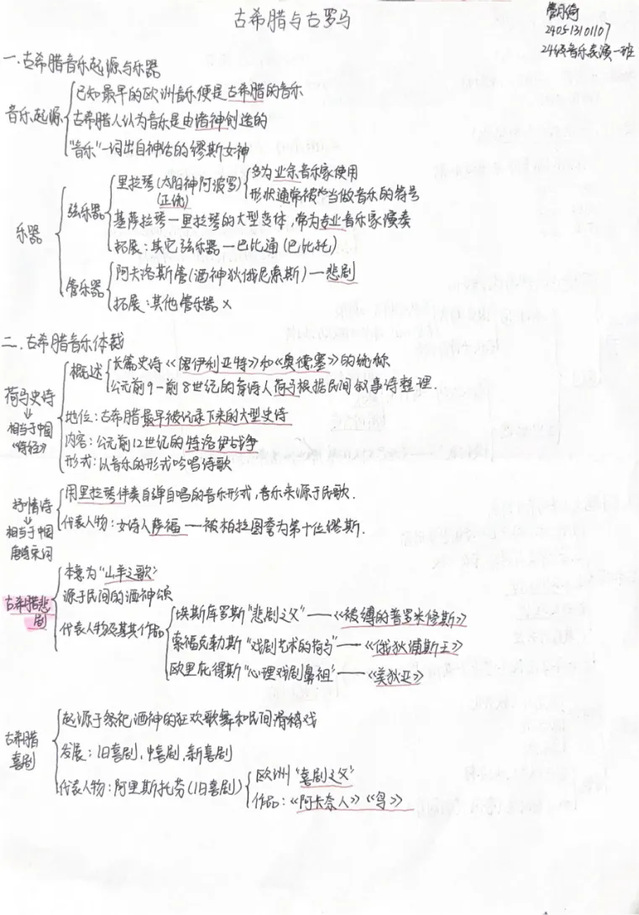 古希腊与古罗马
2405131 01107
24级音乐表演一班
一.古希腊音乐起源与乐器
音乐起源
已知最早的欧洲音乐便是古希腊的音乐
古希腊人认为音乐是由诸神创造的
"音乐"一词出自神话的缪斯女神
乐器
弦乐器
里拉琴(太阳神阿波罗)
(正统)
多为业余音乐家使用
形状通常被当做音乐的符号
基萨拉琴—里拉琴的大型变体,常为专业音乐家演奏
拓展:其它弦乐器—巴比通(巴比托)
管乐器
阿夫洛斯管(酒神狄俄尼索斯)—悲剧
拓展:其他管乐器 ×
二.古希腊音乐体裁
荷马史诗
相当于中国
《诗经》
概述
长篇史诗《伊利亚特》和《奥德赛》的统称
公元前9-前8世纪的盲诗人荷马根据民间叙事诗整理.
地位:古希腊最早被记录下来的大型史诗
内容:公元前12世纪的特洛伊战争
形式:以音乐的形式吟唱诗歌
抒情诗
相当于中国
唐诗宋词
用里拉琴伴奏自弹自唱的音乐形式,音乐来源于民歌.
代表人物:女诗人萨福—被柏拉图誉为第十位缪斯.
古希腊悲剧
本意为"山羊之歌"
源于民间的酒神颂
代表人物及其作品
埃斯库罗斯"悲剧之父"——《被缚的普罗米修斯》
索福克勒斯"戏剧艺术的荷马"——《俄狄浦斯王》
欧里庇得斯"心理戏剧鼻祖"——《美狄亚》
古希腊
喜剧
起源于祭祀酒神的狂欢歌舞和民间滑稽戏
发展:旧喜剧,中喜剧,新喜剧
代表人物:阿里斯托芬(旧喜剧)
欧洲"喜剧之父"
作品:《阿卡奈人》《鸟》